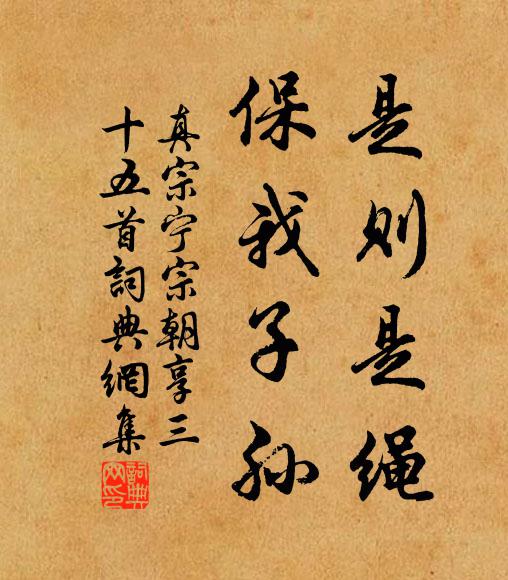 是则是绳
保我子孙
真宗宁宗朝享三
十五首詞典網集
詞典
网印